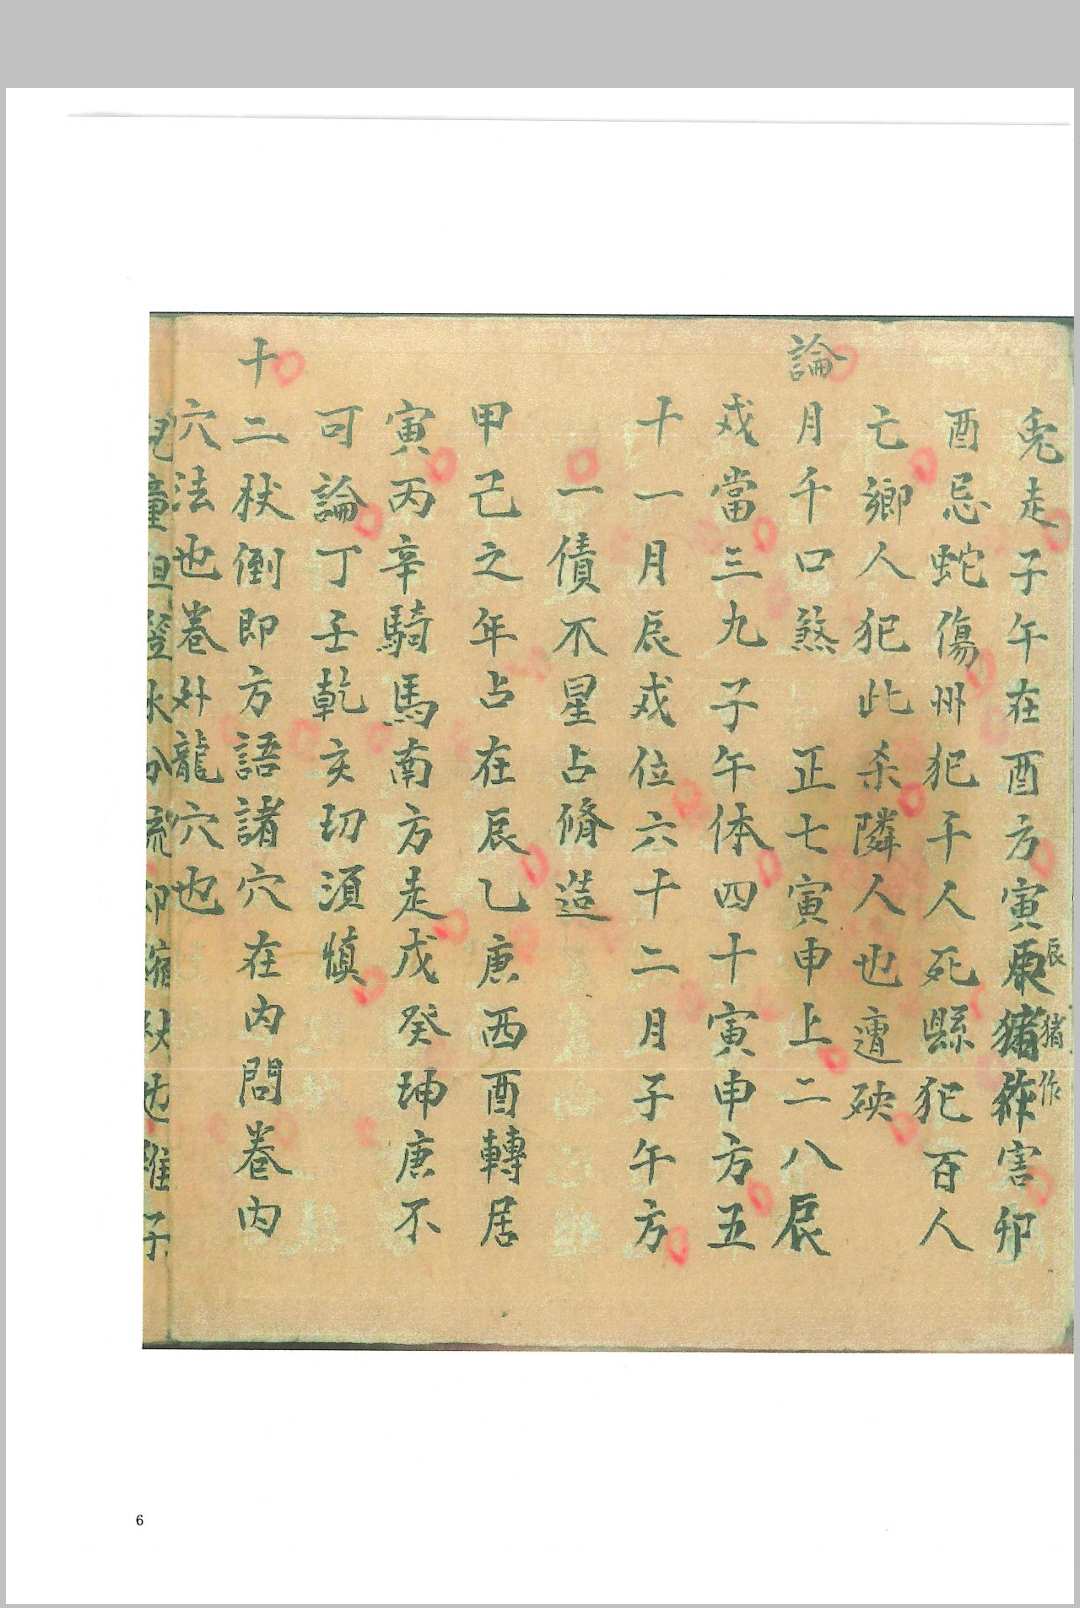 兎走子午在酉方寅辰猪作害卯
酉忌蛇傷州犯千人死縣犯百人
亡鄉人犯此杀隣人也遭殃
論月千口煞 正七寅申上二八辰
戍當三九子午体四十寅申方五
十一月辰戍位六十二月子午方
一債不星占脩造
甲己之年占在辰乙庚西酉轉居
寅丙辛騎馬南方走戊癸坤庚不
可論丁壬乾亥切須慎
十二杖倒即方語諸穴在内問卷内
穴法也卷外龍穴也
6